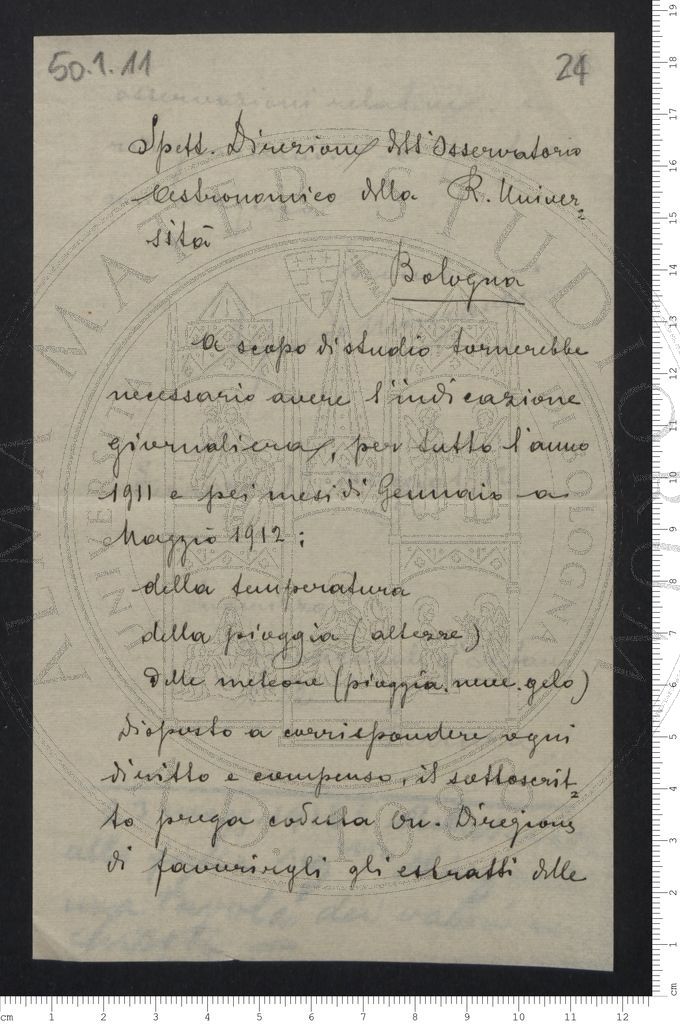 50.1.11
24
Spett. Direzione dell'Osservatorio
Astronomico della R. Univer=
sità
Bologna
A scopo di studio tornerebbe
necessario avere l'indicazione
giornaliera, per tutto l'anno
1911 e pei mesi di Gennaio a
Maggio 1912:
della temperatura
della pioggia (altezze)
delle meteore (pioggia. neve. gelo)
Disposto a corrispondere ogni
diritto e compenso, il sottoscrit=
to prega codesta On. Direzione
di favorirgli gli estratti delle